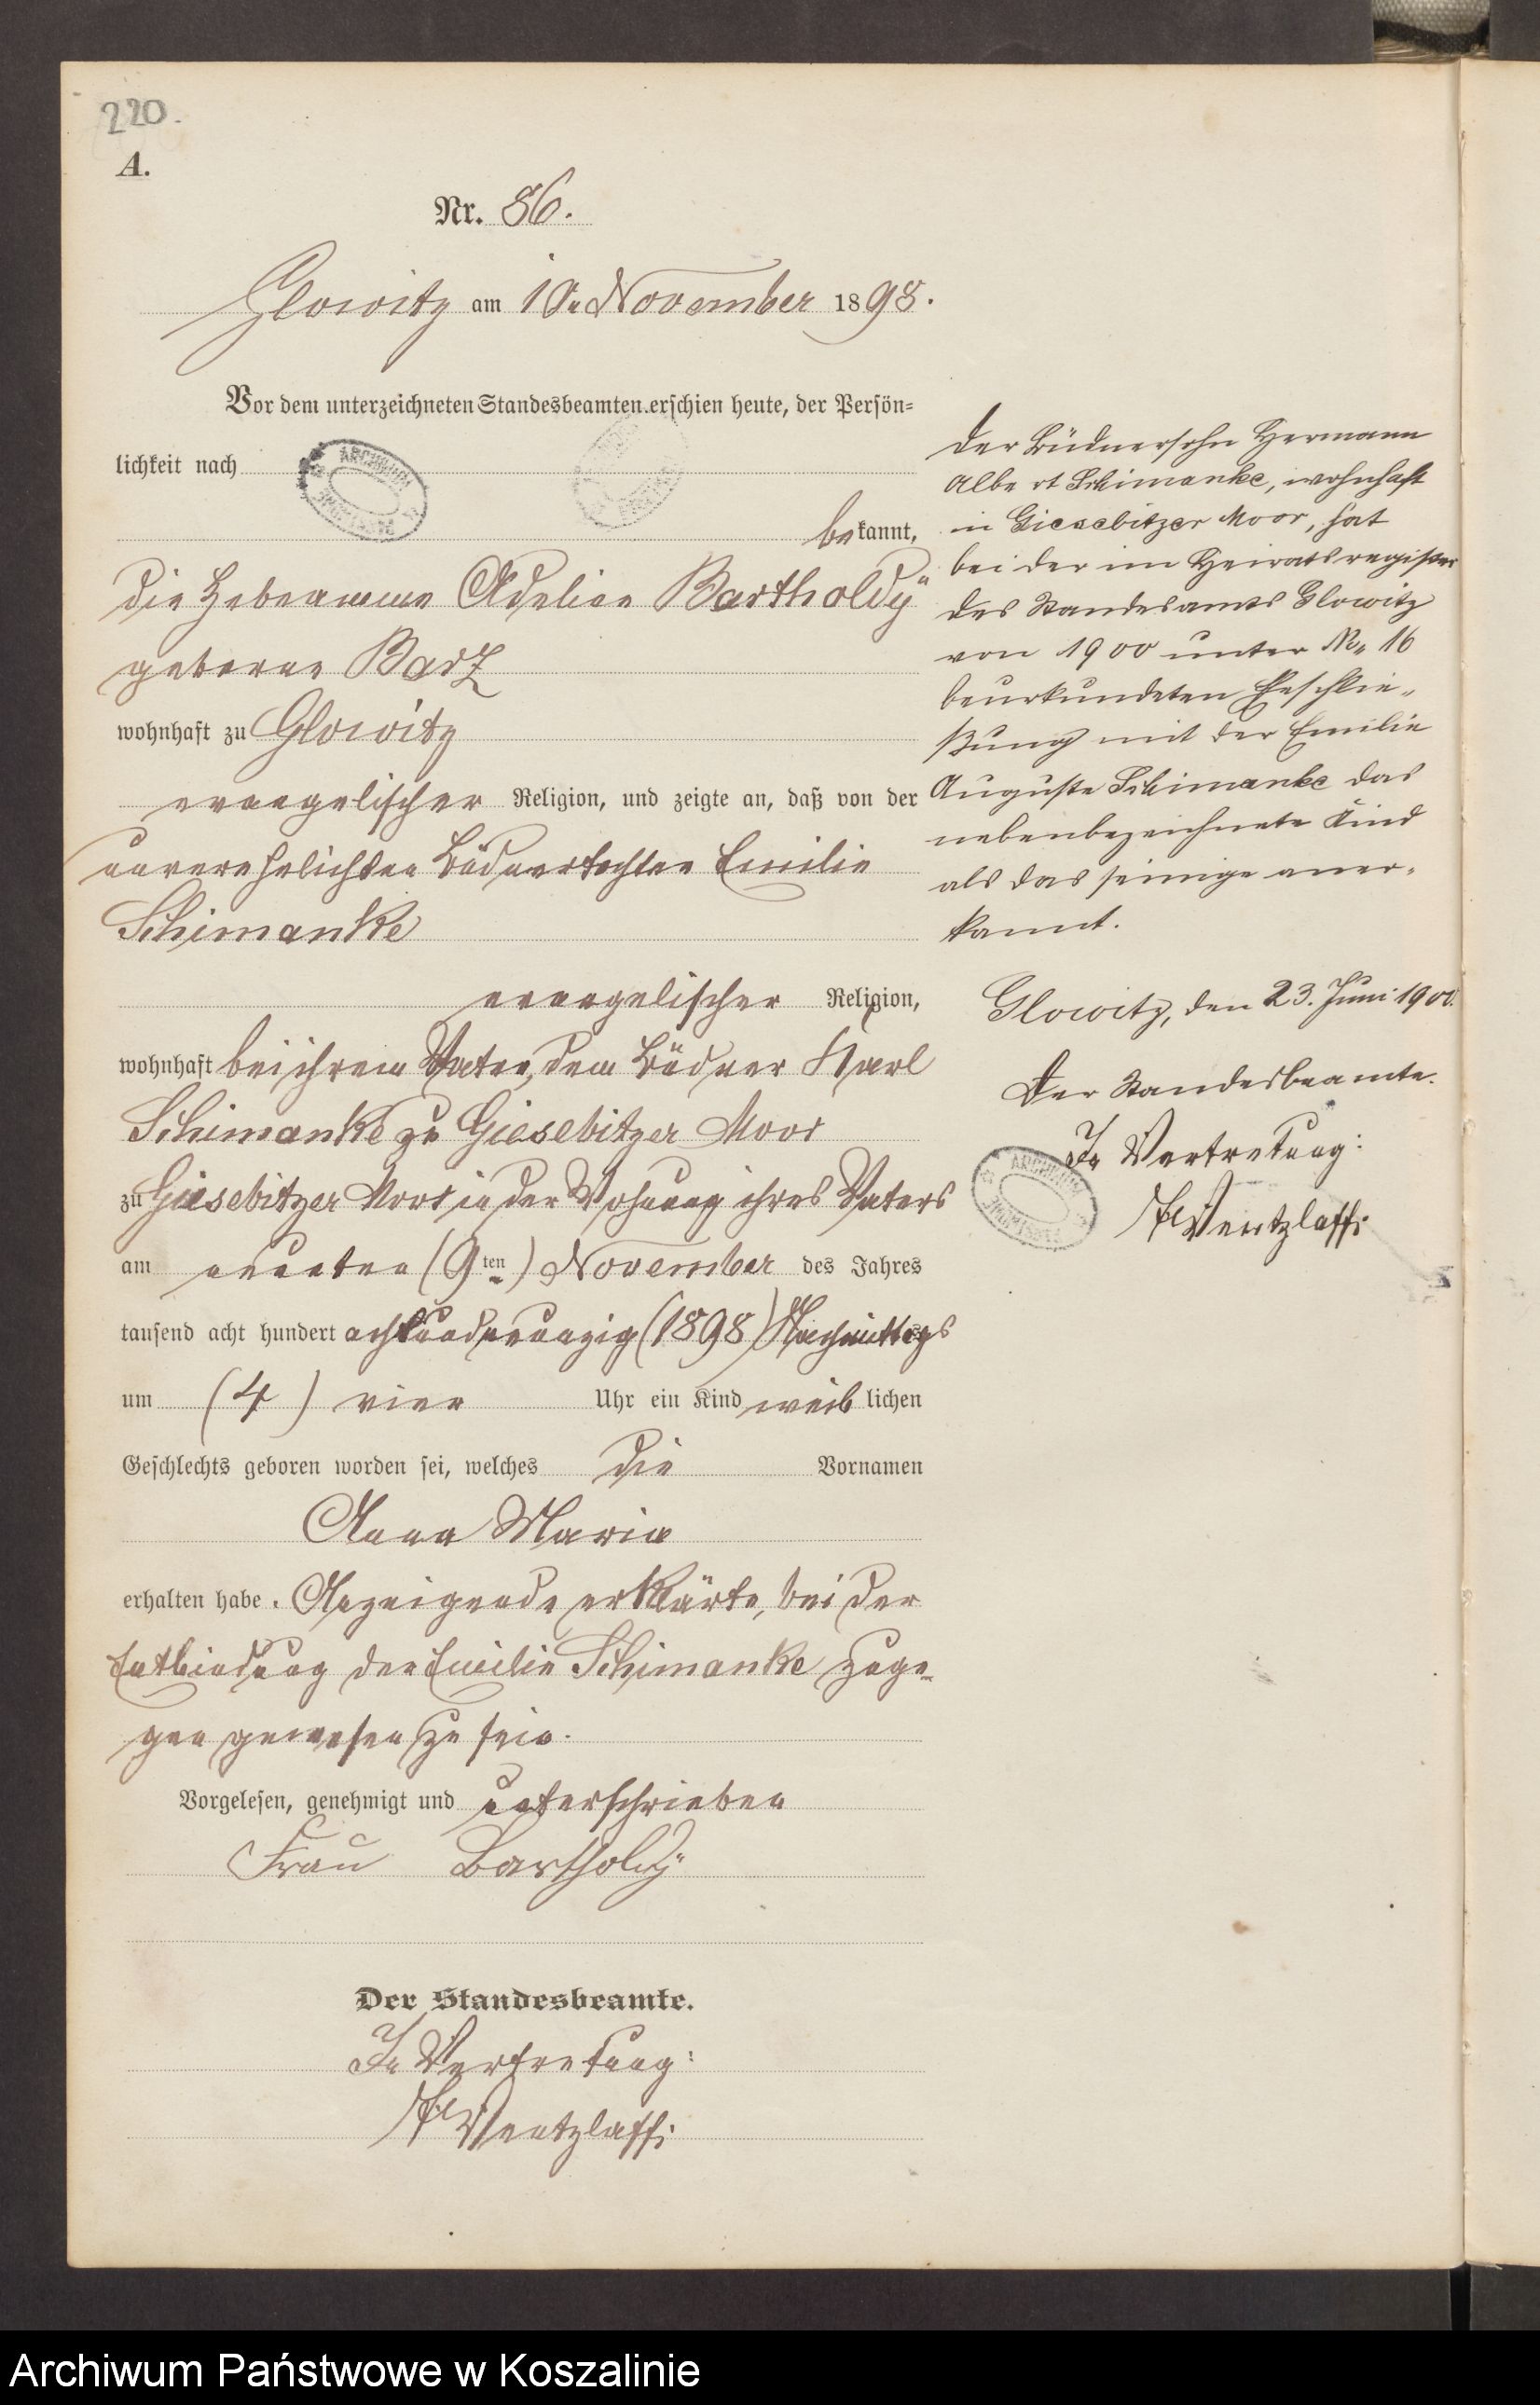 220.
A.
Nr. 86.
Glowitz am 10. November 1898.
Vor dem unterzeichneten Standesbeamten erschien heute, der Persön=
lichkeit nach
bekannt,
die Hebeamme Adeline Bartholdÿ
geborene Barz
wohnhaft zu Glowitz
evangelischer Religion, und zeigte an, daß von der
unverehelichten Büdnertochter Emilie
Schimanke
evangelischer Religion,
wohnhaft bei ihrem Vater, dem Büdner Karl
Schimanke zu Giesebitzer Moor
zu Giesebitzer Moor in der Wohnung ihres Vaters
am neunten (9ten) November des Jahres
tausend acht hundert achtundneunzig (1898) Nachmittags
um (4) vier Uhr ein Kind weiblichen
Geschlechts geboren worden sei, welches die Vornamen
Anna Maria
erhalten habe. Anzeigende erklärte, bei der
Entbindung der Emilie Schimanke zuge-
gen gewesen zu sein.
Vorgelesen, genehmigt und unterschrieben
Frau Bartholdÿ
Der Standesbeamte.
In Vertretung:
Wentzlaff.
Der Büdnersohn Hermann
Albert Schimanke, wohnhaft
in Giesebitzer Moor, hat
bei der im Heiratsregister
des Standesamts Glowitz
von 1900 unter No. 16
beurkundeten Eheschlie-
ßung mit der Emilie
Auguste Schimanke das
nebenbezeichnete Kind
als das seinige aner-
kannt.
Glowitz, den 23. Juni 1900.
Der Standesbeamte.
In Vertretung:
Wentzlaff.
Archiwum Państwowe w Koszalinie